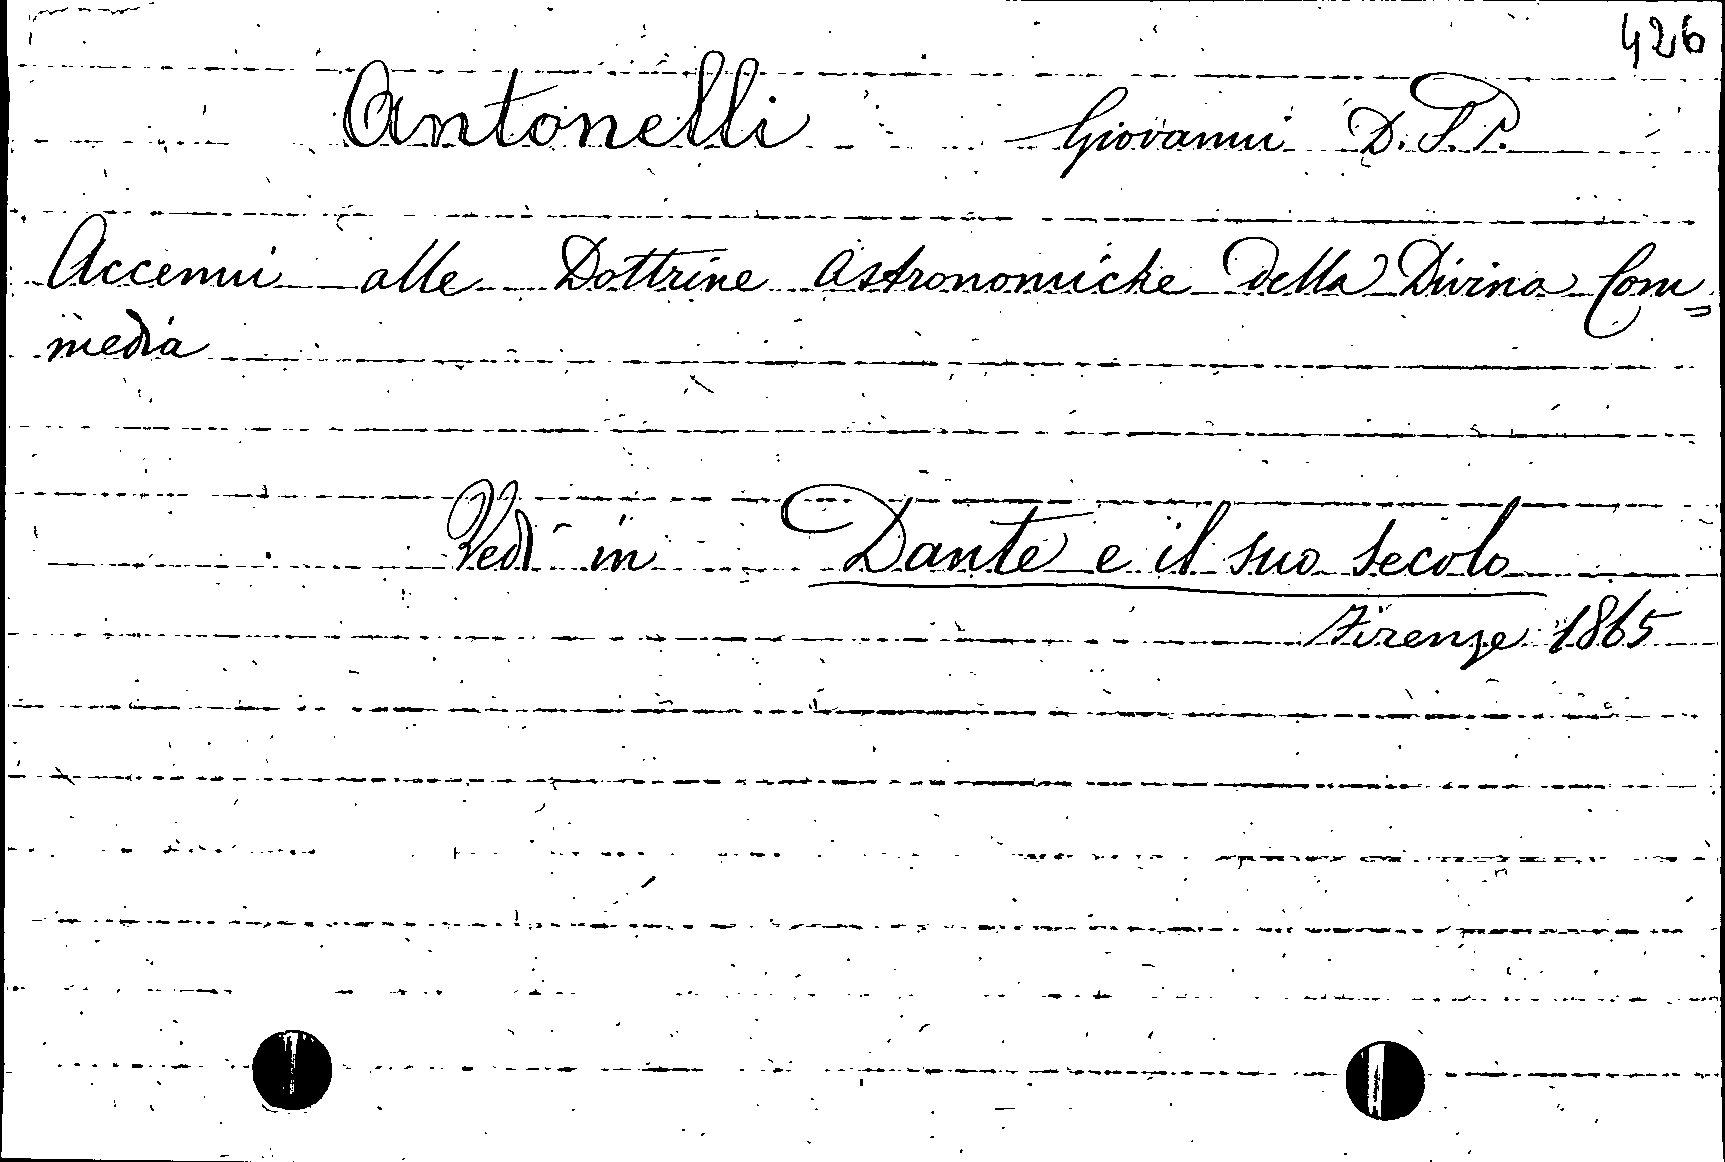 426
Antonelli Giovanni D.S.P.
Accenni alle Dottrine astronomiche della Divina Com=
media
Vedi in Dante e il suo secolo
Firenze 1865